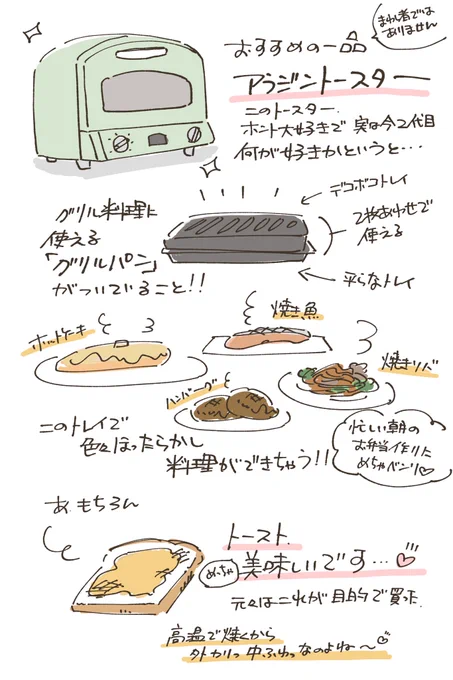 おすすめの一品
まわし者では
ありません
アラジントースター
このトースター、
ホント大好きで 実は今2代目
何が好きかというと…
グリル料理に
使える
「グリルパン」
がついていること!!
デコボコトレイ
2枚あわせで
使える
平らなトレイ
ホットケーキ
焼き魚
ハンバーグ
焼きソバ
このトレイで
色々ほったらかし
料理ができちゃう!!
忙しい朝の
お弁当作りに
めちゃベンリ♡
あ、もちろん
トースト、
めっちゃ
美味しいです…♡
元々はこれが目的で買った
高温で焼くから
外カリっ中ふわっなのよね〜♡